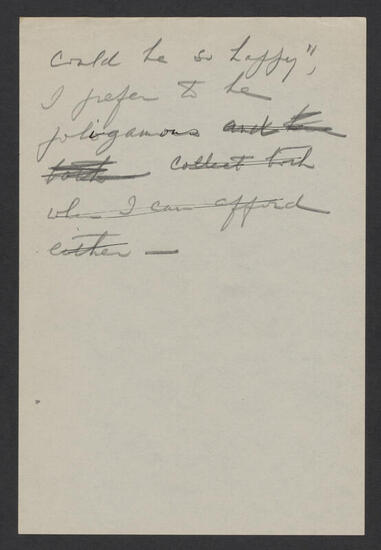 could be so happy",
I prefer to be
poligamous and to
both collect both
when I can afford
either —